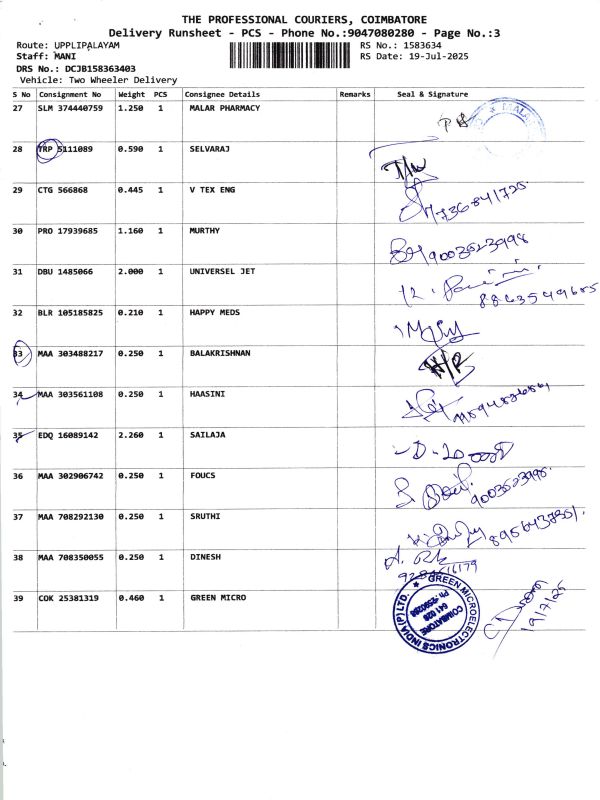 THE PROFESSIONAL COURIERS, COIMBATORE
Delivery Runsheet - PCS - Phone No.:9047080280 - Page No.:3
Route: UPPLIPALAYAM RS No.: 1583634
Staff: MANI RS Date: 19-Jul-2025
DRS No.: DCJB158363403
Vehicle: Two Wheeler Delivery
S No Consignment No Weight PCS Consignee Details Remarks Seal & Signature
27 SLM 374440759 1.250 1 MALAR PHARMACY
28 TRP 5111089 0.590 1 SELVARAJ
29 CTG 566868 0.445 1 V TEX ENG
30 PRO 17939685 1.160 1 MURTHY 9003523998
31 DBU 1485066 2.000 1 UNIVERSEL JET 8863549685
32 BLR 105185825 0.210 1 HAPPY MEDS
33 MAA 303488217 0.250 1 BALAKRISHNAN
34 MAA 303561108 0.250 1 HAASINI
35 EDQ 16089142 2.260 1 SAILAJA
36 MAA 302906742 0.250 1 FOUCS
37 MAA 708292130 0.250 1 SRUTHI
38 MAA 708350055 0.250 1 DINESH
39 COK 25381319 0.460 1 GREEN MICRO
GREEN MICROELECTRONICS INDIA (P) LTD.
COIMBATORE
641 028
19/7/25